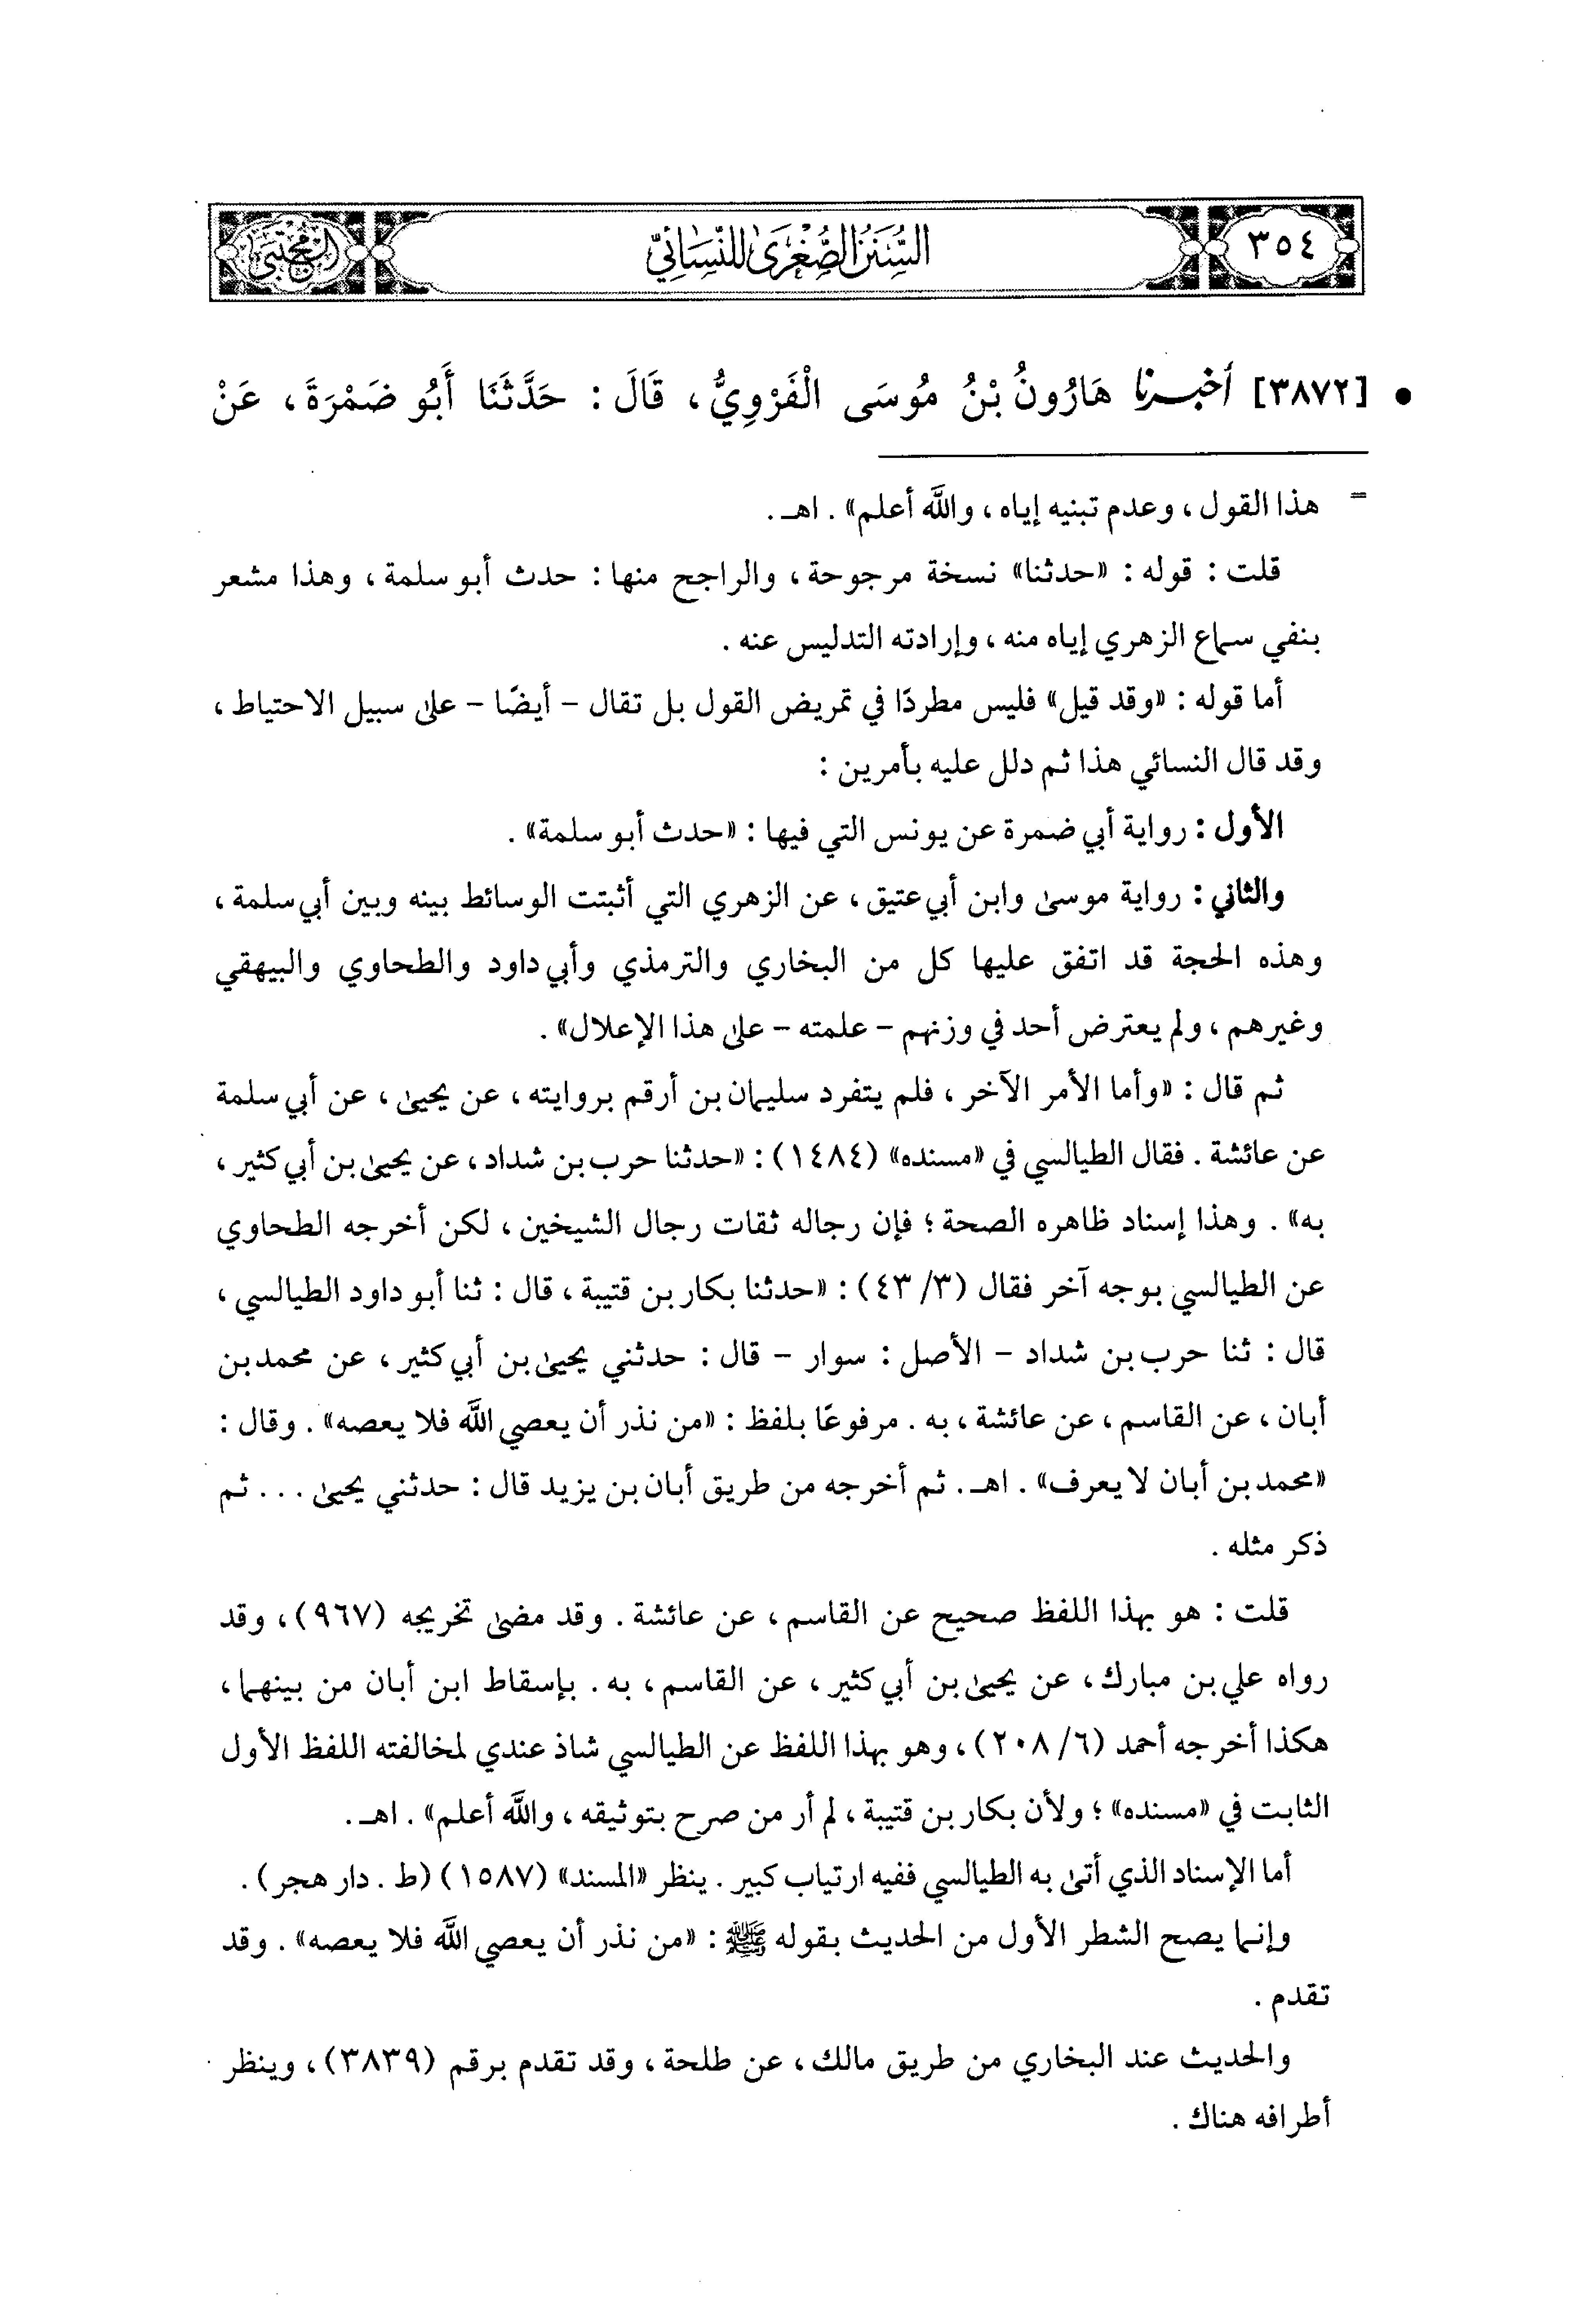 ٣٥٤
السُّنَنُ الصُّغْرَىٰ لِلنَّسَائِيِّ
المجتبى
• [٣٨٧٢] أخبرنا هَارُونُ بْنُ مُوسَى الْفَرْوِيُّ، قَالَ : حَدَّثَنَا أَبُو ضَمْرَةَ، عَنْ
= هذا القول ، وعدم تبنيه إياه ، والله أعلم» . اهـ .
قلت : قوله : «حدثنا» نسخة مرجوحة ، والراجح منها : حدث أبو سلمة ، وهذا مشعر
بنفي سماع الزهري إياه منه ، وإرادته التدليس عنه .
أما قوله : «وقد قيل» فليس مطردًا في تمريض القول بل تقال - أيضًا - على سبيل الاحتياط ،
وقد قال النسائي هذا ثم دلل عليه بأمرين :
الأول : رواية أبي ضمرة عن يونس التي فيها : «حدث أبو سلمة» .
والثاني : رواية موسىٰ وابن أبي عتيق ، عن الزهري التي أثبتت الوسائط بينه وبين أبي سلمة ،
وهذه الحجة قد اتفق عليها كل من البخاري والترمذي وأبي داود والطحاوي والبيهقي
وغيرهم ، ولم يعترض أحد في وزنهم - علمته - علىٰ هذا الإعلال» .
ثم قال : «وأما الأمر الآخر ، فلم يتفرد سليمان بن أرقم بروايته ، عن يحيىٰ ، عن أبي سلمة
عن عائشة . فقال الطيالسي في «مسنده» (١٤٨٤) : «حدثنا حرب بن شداد ، عن يحيىٰ بن أبي كثير ،
به» . وهذا إسناد ظاهره الصحة ؛ فإن رجاله ثقات رجال الشيخين ، لكن أخرجه الطحاوي
عن الطيالسي بوجه آخر فقال (٣/ ٤٣) : «حدثنا بكار بن قتيبة ، قال : ثنا أبو داود الطيالسي ،
قال : ثنا حرب بن شداد - الأصل : سوار - قال : حدثني يحيىٰ بن أبي كثير ، عن محمد بن
أبان ، عن القاسم ، عن عائشة ، به . مرفوعًا بلفظ : «من نذر أن يعصي الله فلا يعصه» . وقال :
«محمد بن أبان لا يعرف» . اهـ . ثم أخرجه من طريق أبان بن يزيد قال : حدثني يحيىٰ . . . ثم
ذكر مثله .
قلت : هو بهذا اللفظ صحيح عن القاسم ، عن عائشة . وقد مضىٰ تخريجه (٩٦٧) ، وقد
رواه علي بن مبارك ، عن يحيىٰ بن أبي كثير ، عن القاسم ، به . بإسقاط ابن أبان من بينهما ،
هكذا أخرجه أحمد (٦/ ٢٠٨) ، وهو بهذا اللفظ عن الطيالسي شاذ عندي لمخالفته اللفظ الأول
الثابت في «مسنده» ؛ ولأن بكار بن قتيبة ، لم أر من صرح بتوثيقه ، والله أعلم» . اهـ .
أما الإسناد الذي أتىٰ به الطيالسي ففيه ارتياب كبير . ينظر «المسند» (١٥٨٧) (ط . دار هجر) .
وإنما يصح الشطر الأول من الحديث بقوله ﷺ : «من نذر أن يعصي الله فلا يعصه» . وقد
تقدم .
والحديث عند البخاري من طريق مالك ، عن طلحة ، وقد تقدم برقم (٣٨٣٩) ، وينظر
أطرافه هناك .